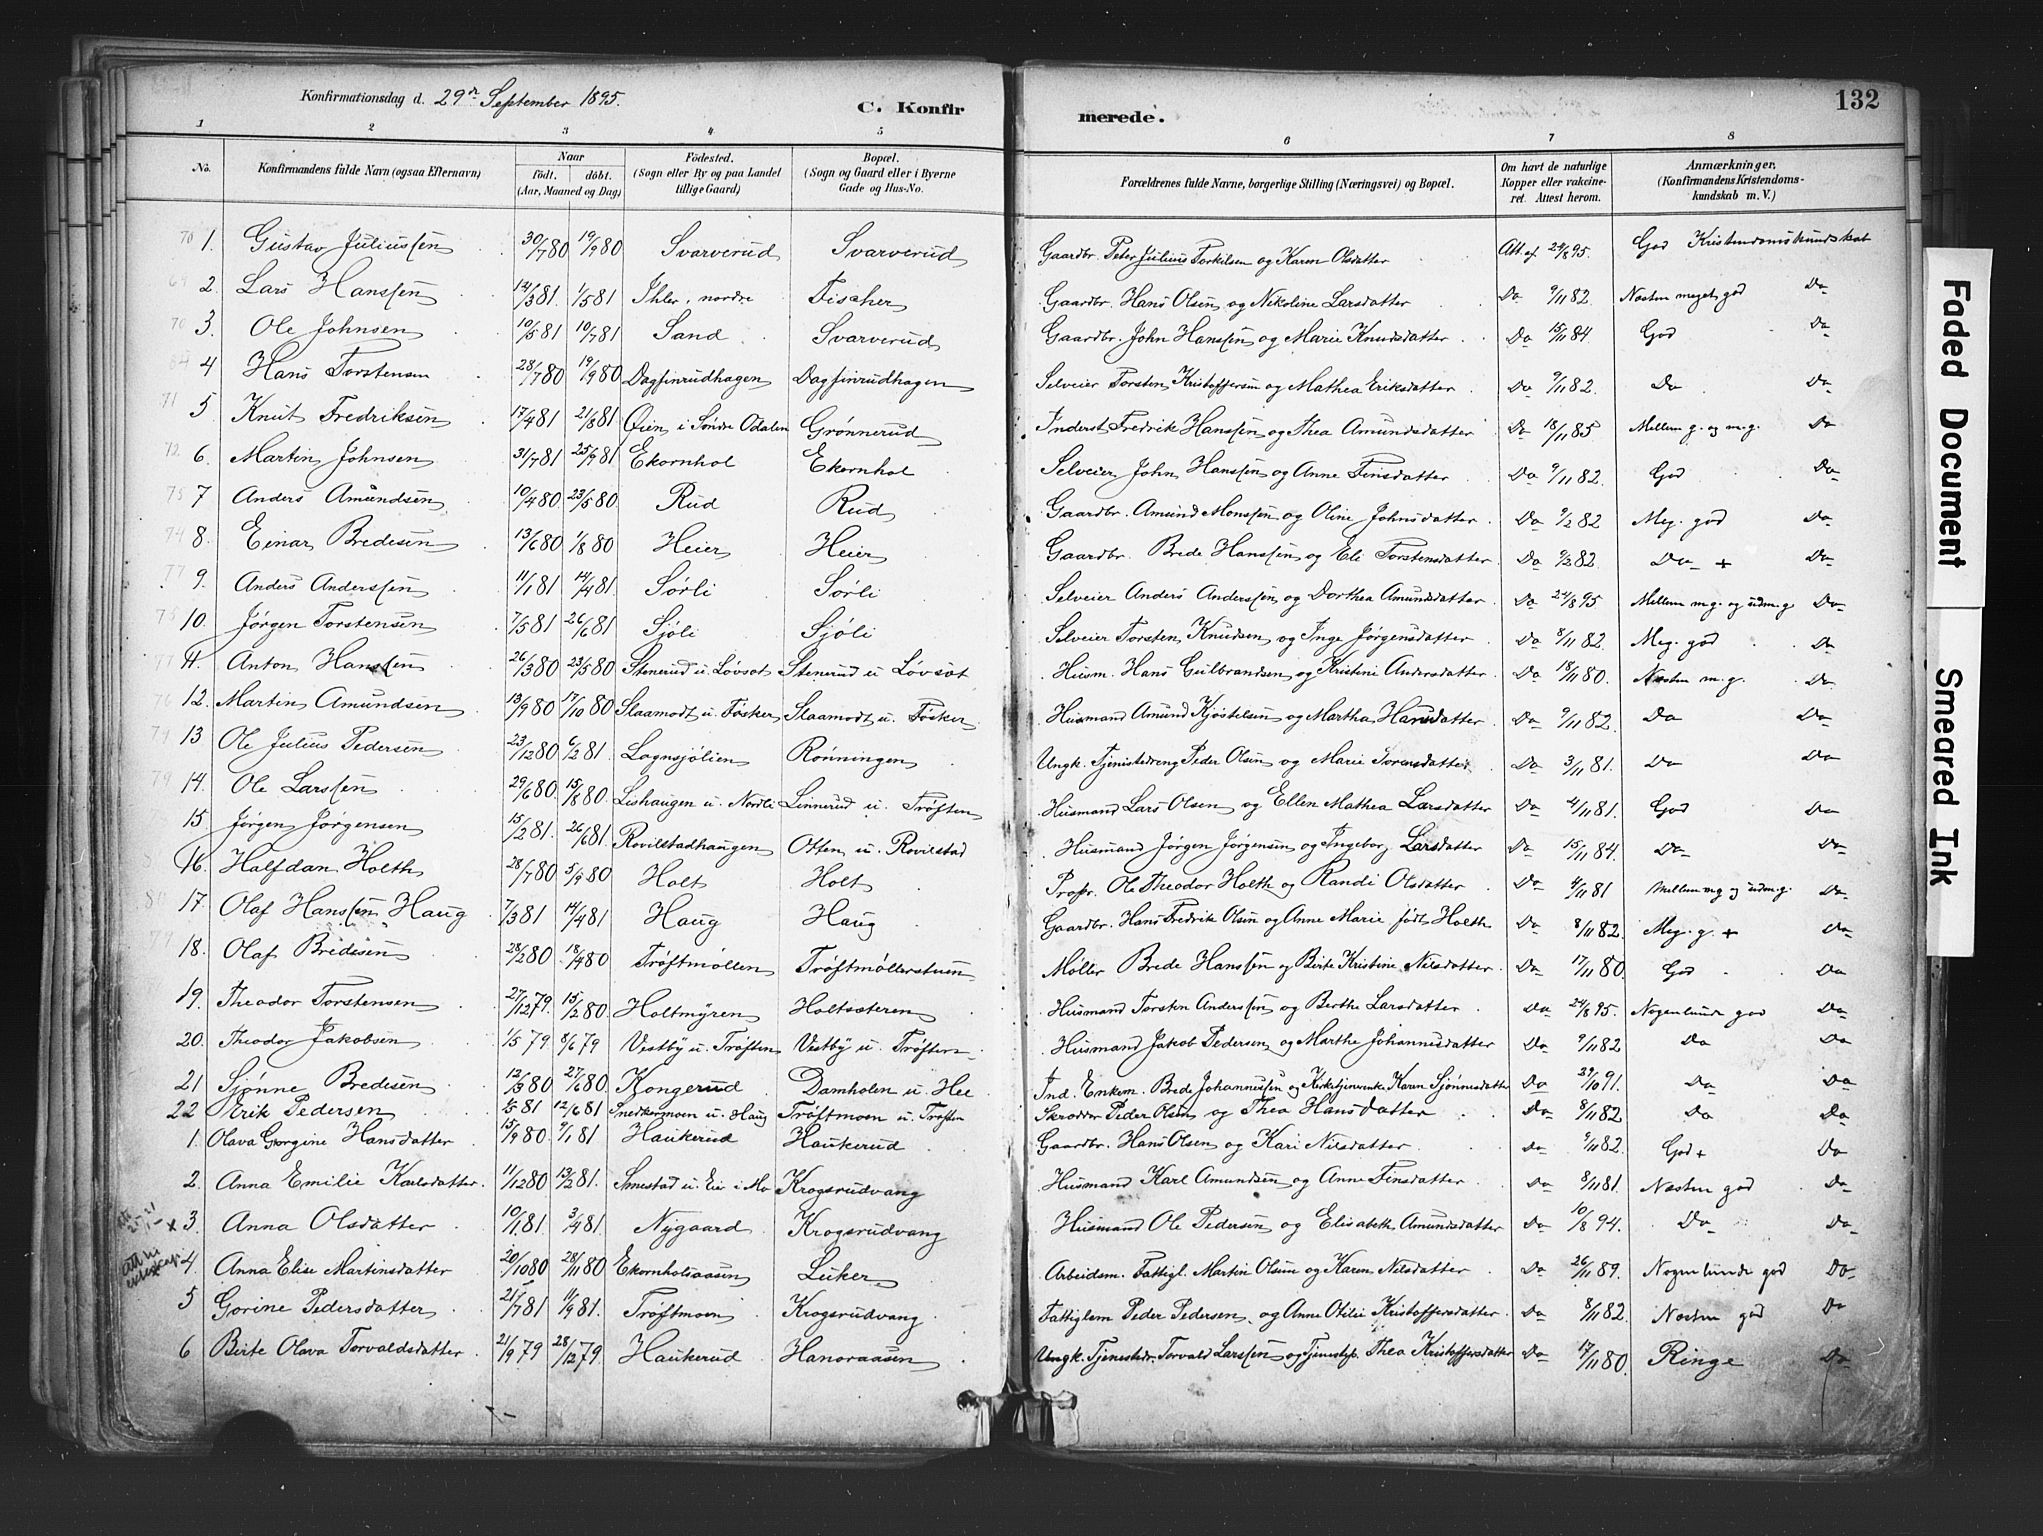 Konfirmationsdag d. 29de September 1895.
C. Konfirmerede.
132
1 2 3 4 5 6 7 8
No. Konfirmandens fulde Navn (ogsaa Efternavn) Naar födt. döbt. (Aar, Maaned og Dag) Födested. (Sogn eller By og paa Landet tillige Gaard) Bopæl. (Sogn og Gaard eller i Byerne Gade og Hus-No. Forældrenes fulde Navne, borgerlige Stilling (Næringsvei) og Bopæl. Om havt de naturlige Kopper eller vakcineret. Attest herom. Anmærkninger. (Konfirmandens Kristendomskundskab m. V.)
1. Gustav Juliussen 30/7 80 19/9 80 Svarverud Svarverud Gaardbr. Peter Julius Torkilsen og Karen Olsdatter Att. af 24/8 95. God Kristendomskundskab
2. Lars Hanssen 14/3 81. 1/5 81 Ihler, nordre Fischer Gaardbr. Hans Olsen og Nikoline Larsdatter Do 9/11 82. Næsten meget god Do
3. Ole Johnsen 10/5 81 10/7 81 Sand Svarverud Gaardbr. John Hanssen og Marie Knudsdatter Do 15/11 84. God Do
4 Hans Torstensen 28/7 80 19/9 80 Dagfinrudhagen Dagfinrudhagen Selveier Torsten Kristoffersen og Mathea Eriksdatter Do 9/11 82. Do Do
5. Knut Fredriksen 17/4 81 21/8 81 Øien i Søndre Odalen Grønnerud Inderst Fredrik Hanssen og Thea Amundsdatter Do 18/11 85. Mellem g. og m.g. Do
6. Martin Johnsen 31/7 81 25/9 81 Ekornhol Ekornhol Selveier John Hanssen og Anne Finsdatter Do 9/11 82. God Do
7 Anders Amundsen 10/4 80 23/5 80 Rud Rud Gaardbr. Amund Monssen og Oline Johnsdatter Do 9/2 82 Meg. god Do
8. Einar Bredesen 13/6 80 1/8 80 Heier Heier Gaardbr. Brede Hanssen og Eli Torstensdatter Do 9/2 82. Do + Do
9. Anders Anderssen 11/1 81 14/4 81 Sørli Sørli Selveier Anders Anderssen og Dorthea Amundsdatter Do 24/8 95 Mellem m.g. og udm.g Do
10. Jørgen Torstensen 7/5 81 26/6 81 Sjøli Sjøli Selveier Torsten Knudsen og Inge Jørgensdatter Do 8/11 82. Meg. god Do
11. Anton Hanssen 26/3 80 23/5 80 Stenerud u. Løvsæt Stenerud u Løvsæt Husm. Hans Gulbrandsen og Kristine Andersdatter Do 18/11 80. Næsten m.g. Do
12. Martin Amundsen 13/9 80 17/10 80 Slaamodt u. Føsker Slaamodt u. Føsker Husmand Amund Kjøstelsen og Martha Hansdatter Do 9/11 82. Do Do
13 Ole Julius Pedersen 23/12 80 6/2 81 Lognsjølien Rønningen Ungk. Tjenestedreng Peder Olsen og Marie Do 3/11 81. Do Do
14. Ole Larssen 29/6 80 15/8 80 Lishaugen u. Nordli Linnerud u. Trøften Husmand Lars Olsen og Ellen Mathea Larsdatter Do 4/11 81. God Do
15 Jørgen Jørgensen 15/2 81. 26/6 81. Rovilstadhaugen Otten u. Rovilstad Husmand Jørgen Jørgensen og Ingeborg Larsdatter Do 15/11 84. Do Do
16. Halfdan Holth 28/7 80 5/9 80 Holt Holt Propr. Ole Theodor Holth og Randi Olsdatter Do 4/11 81 Mellem mg og udm.g. Do
17. Olaf Hanssen Haug 7/3 81 14/4 81 Haug Haug Gaardbr. Hans Fredrik Olsen og Anne Marie født Holth Do 8/11 82. Meg. g. + Do
18. Olaf Bredesen 28/2 80 18/4 80 Trøftmøllen Trøftmøllerstuen Møller Brede Hanssen og Birte Kristine Nilsdatter Do 17/11 80. God Do
19. Theodor Torstensen 27/12 79. 15/2 80 Holtmyren Holtsæteren Husmand Torsten Anderssen og Berthe Larsdatter Do 24/8 95. Nogenlunde god Do
20. Theodor Jakobsen 1/5 79 8/6 79 Vestby u. Trøften Vestby u. Trøften Husmand Jakob Pedersen og Marthe Johannesdatter Do 9/11 82 Do Do
21 Sjønne Bredesen 12/3 80 27/6 80 Kongerud Damholen u. Hee Ind. Enkem. Brede Johannessen og Karen Sjønnesdatter Do 29/10 91. Do Do
22 Erik Pedersen 81 12/6 81 Snedkermoen u. Haug Trøftmoen u. Trøften Skrædder Peder Olsen og Thea Hansdatter Do 8/11 82. Do Do
1. Olava Gorgine Hansdatter 15/9 80. 9/1 81 Haukerud Haukerud Gaardbr. Hans Olsen og Kari Nilsdatter Do 9/11 82. God + Do
2. Anna Emilie Karlsdatter. 11/12 80 13/2 81. Smestad u. Eier i Mo Krogsrudvang Husmand Karl Amundsen og Anne Finsdatter Do 8/11 81. Næsten god Do
x 3. Anna Olsdatter 10/1 81 3/4 81 Nygaard Krogsrudvang Husmand Ole Pedersen og Elisabeth Amundsdatter Do 10/8 94. Do Do
4. Anna Elise Martinsdatter 20/10 80 28/11 80 Ekornholsaasen Luker Arbeidsm. Fattigl. Martin Olsen og Karen Nilsdatter Do 26/11 89. Nogenlunde god Do
5 Gorine Pedersdatter 21/7 81 11/9 81. Trøftmoen Krogsrudvang Fattiglem Peder Pedersen og Anne Otilie Kristoffersdatter Do 8/11 82. Næsten god Do
6 Birte Olava Torvaldsdatter 21/9 79 28/12 79 Haukerud Hanoraasen Ungk. Tjenestedr. Torvald Larssen og Tjenestep. Thea Kristoffersdatter Do 17/11 80. Ringe Do
Faded Document
Smeared Ink